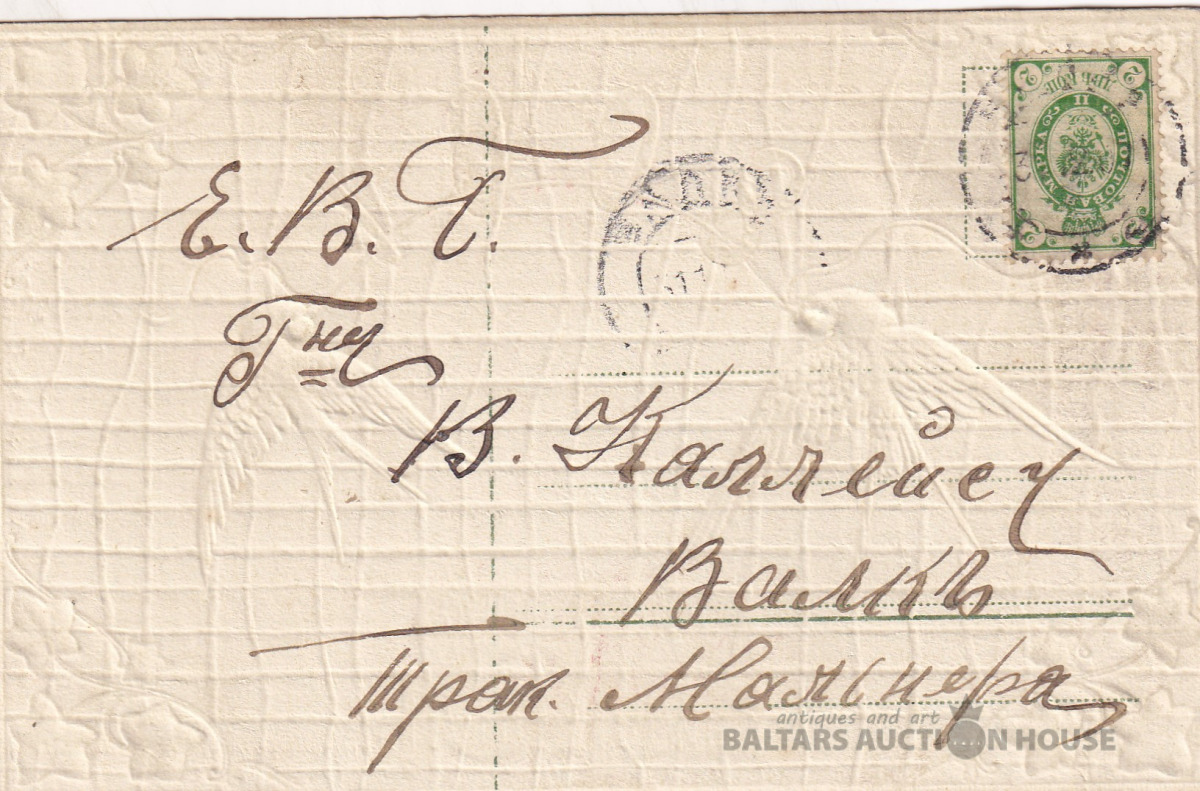 Е. В. Б.
Гну
В. Каллейсу
Валкъ
трак. Мальнера
ПОЧТОВАЯ МАРКА
2
2
antiques and art
BALTARS AUCTION HOUSE